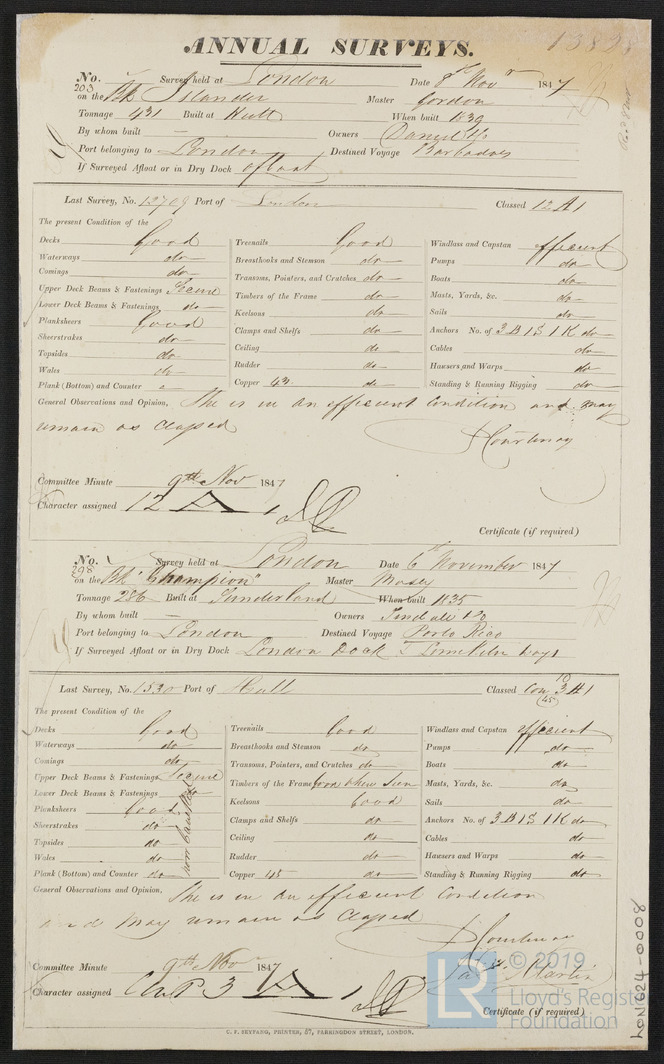 ANNUAL SURVEYS.
13898
No. 203 Survey held at London Date 8th Novr 1847
on the Bk Islander Master Gordon
Tonnage 431 Built at Hull When built 1839
By whom built — Owners Daniel & Co
Port belonging to London Destined Voyage Barbadoes
If Surveyed Afloat or in Dry Dock afloat
Last Survey, No. 12709 Port of London Classed 12 A 1
The present Condition of the
Decks Good Treenails Good Windlass and Capstan efficient
Waterways do Breasthooks and Stemson do Pumps do
Comings do Transoms, Pointers, and Crutches do Boats do
Upper Deck Beams & Fastenings Secure Timbers of the Frame do Masts, Yards, &c. do
Lower Deck Beams & Fastenings do Keelsons do Sails do
Planksheers Good Clamps and Shelfs do Anchors No. of 3 B 1 S 1 K do
Sheerstrakes do Ceiling do Cables do
Topsides do Rudder do Hawsers and Warps do
Wales do Copper 43 do Standing & Running Rigging do
Plank (Bottom) and Counter
General Observations and Opinion, She is in an efficient Condition and may
remain as Classed
Courtenay
Committee Minute 9th Nov 1847
Character assigned 12 A 1
Certificate (if required)
No. 298 Survey held at London Date 6th November 1847
on the Bk "Champion" Master Mosey
Tonnage 286 Built at Sunderland When built 1835
By whom built — Owners Tindall & Co
Port belonging to London Destined Voyage Porto Rico
If Surveyed Afloat or in Dry Dock London Dock &
Last Survey, No. 1530 Port of Hull Classed Con 3 A 1
10
(45)
The present Condition of the
Decks Good Treenails Good Windlass and Capstan efficient
Waterways do Breasthooks and Stemson do Pumps do
Comings do Transoms, Pointers, and Crutches do Boats do
Upper Deck Beams & Fastenings Secure Timbers of the Frame where Seen Masts, Yards, &c. do
Lower Deck Beams & Fastenings do Keelsons Good Sails do
Planksheers Good Clamps and Shelfs do Anchors No. of 3 B 1 S 1 K do
Sheerstrakes do Ceiling do Cables do
Topsides do Rudder do Hawsers and Warps do
Wales do Copper 45 do Standing & Running Rigging do
Plank (Bottom) and Counter do
General Observations and Opinion, She is in an efficient Condition
and may remain as Classed
Courtenay
Martin
Committee Minute 9th Nov 1847
Character assigned 3 A 1
Certificate (if required)
C. F. SEYFANG, PRINTER, 57, FARRINGDON STREET, LONDON.
LON 624-0008
LR © 2019
Lloyd's Register
Foundation